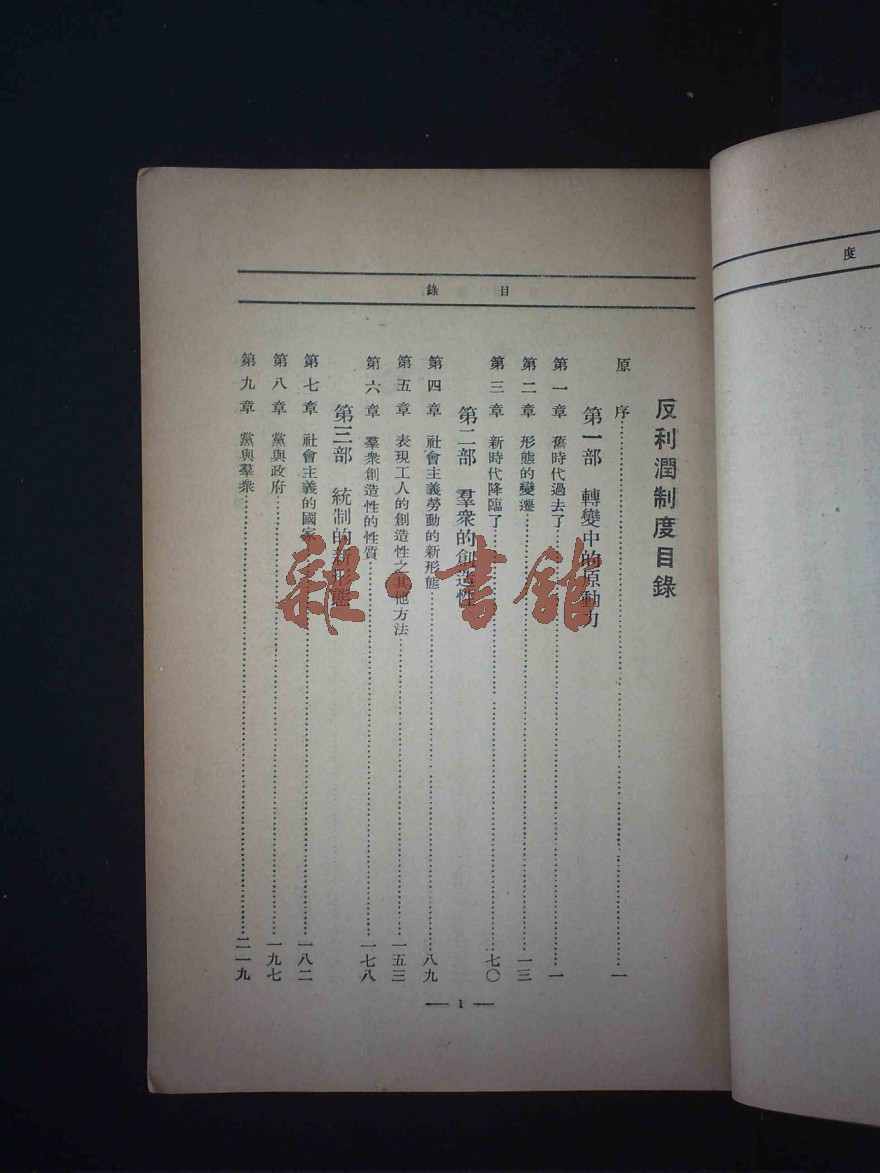 度
目錄
反利潤制度目錄
原序……一
第一部 轉變中的原動力
第一章 舊時代過去了……一
第二章 形態的變遷……一三
第三章 新時代降臨了……七〇
第二部 羣衆的創造性
第四章 社會主義勞動的新形態……八九
第五章 表現工人的創造性之其他方法……一五三
第六章 羣衆創造性的性質……一七八
第三部 統制的新形態
第七章 社會主義的國家……一八二
第八章 黨與政府……一九七
第九章 黨與羣衆……二一九
— 1 —
雜·書館